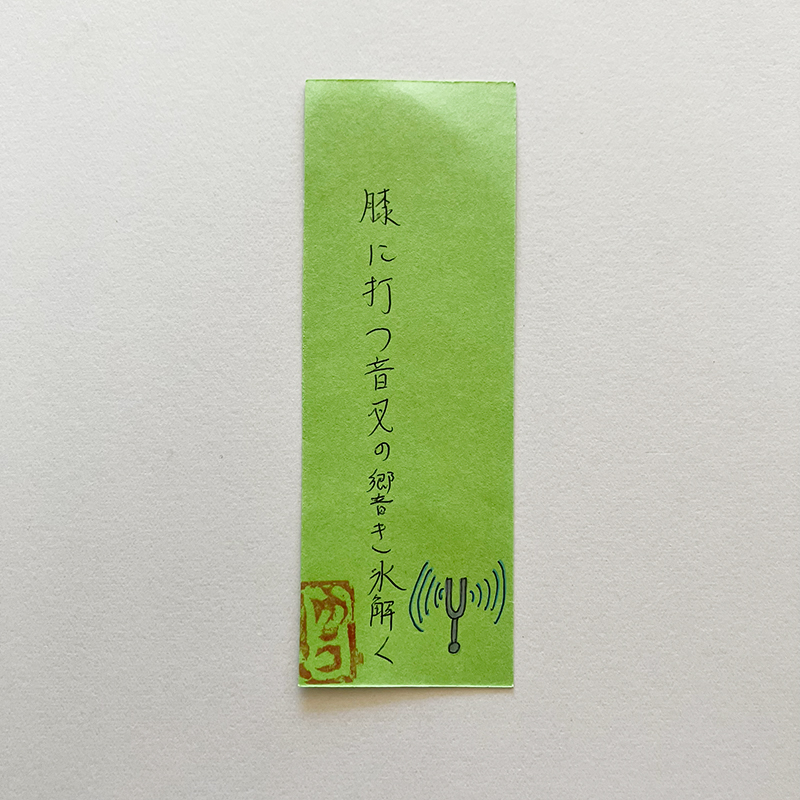 膝に打つ音叉の響き氷解く